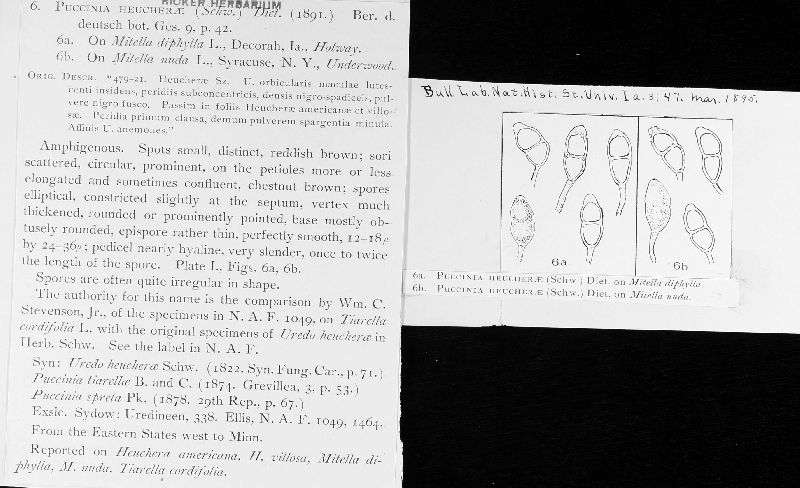 RICKER HERBARIUM
6. PUCCINIA HEUCHERÆ (Schw.) Diet. (1891.) Ber. d.
deutsch bot. Ges. 9, p. 42.
6a. On Mitella diphylla L., Decorah, Ia., Holway.
6b. On Mitella nuda L., Syracuse, N. Y., Underwood.
ORIG. DESCR. "479-21. Heucheræ Sz. U. orbicularis maculae lutes-
centi insidens, peridiis subconcentricis, densis nigro-spadiceis, pul-
vere nigro fusco. Passim in foliis Heucheræ americanæ et villo-
sæ. Peridia primum clausa, demum pulverem spargentia minuta.
Affinis U. anemones."
Amphigenous. Spots small, distinct, reddish brown; sori
scattered, circular, prominent, on the petioles more or less
elongated and sometimes confluent, chestnut brown; spores
elliptical, constricted slightly at the septum, vertex much
thickened, rounded or prominently pointed, base mostly ob-
tusely rounded, epispore rather thin, perfectly smooth, 12-18µ
by 24-36µ; pedicel nearly hyaline, very slender, once to twice
the length of the spore. Plate I., Figs. 6a, 6b.
Spores are often quite irregular in shape.
The authority for this name is the comparison by Wm. C.
Stevenson, Jr., of the specimens in N. A. F. 1049, on Tiarella
cordifolia L. with the original specimens of Uredo heucheræ in
Herb. Schw. See the label in N. A. F.
Syn: Uredo heucheræ Schw. (1822. Syn. Fung. Car., p. 71.)
Puccinia tiarellæ B. and C. (1874. Grevillea, 3, p. 53.)
Puccinia spreta Pk. (1878. 29th Rep., p. 67.)
Exsic. Sydow: Uredineen, 338. Ellis, N. A. F. 1049, 1464.
From the Eastern States west to Minn.
Reported on Heuchera americana, H. villosa, Mitella di-
phylla, M. nuda, Tiarella cordifolia.
Bull Lab. Nat. Hist. St. Univ. Ia. 3; 47. Mar. 1895.
6a
6b
6a. PUCCINIA HEUCHERÆ (Schw.) Diet. on Mitella diphylla.
6b. PUCCINIA HEUCHERÆ (Schw.) Diet. on Mitella nuda.